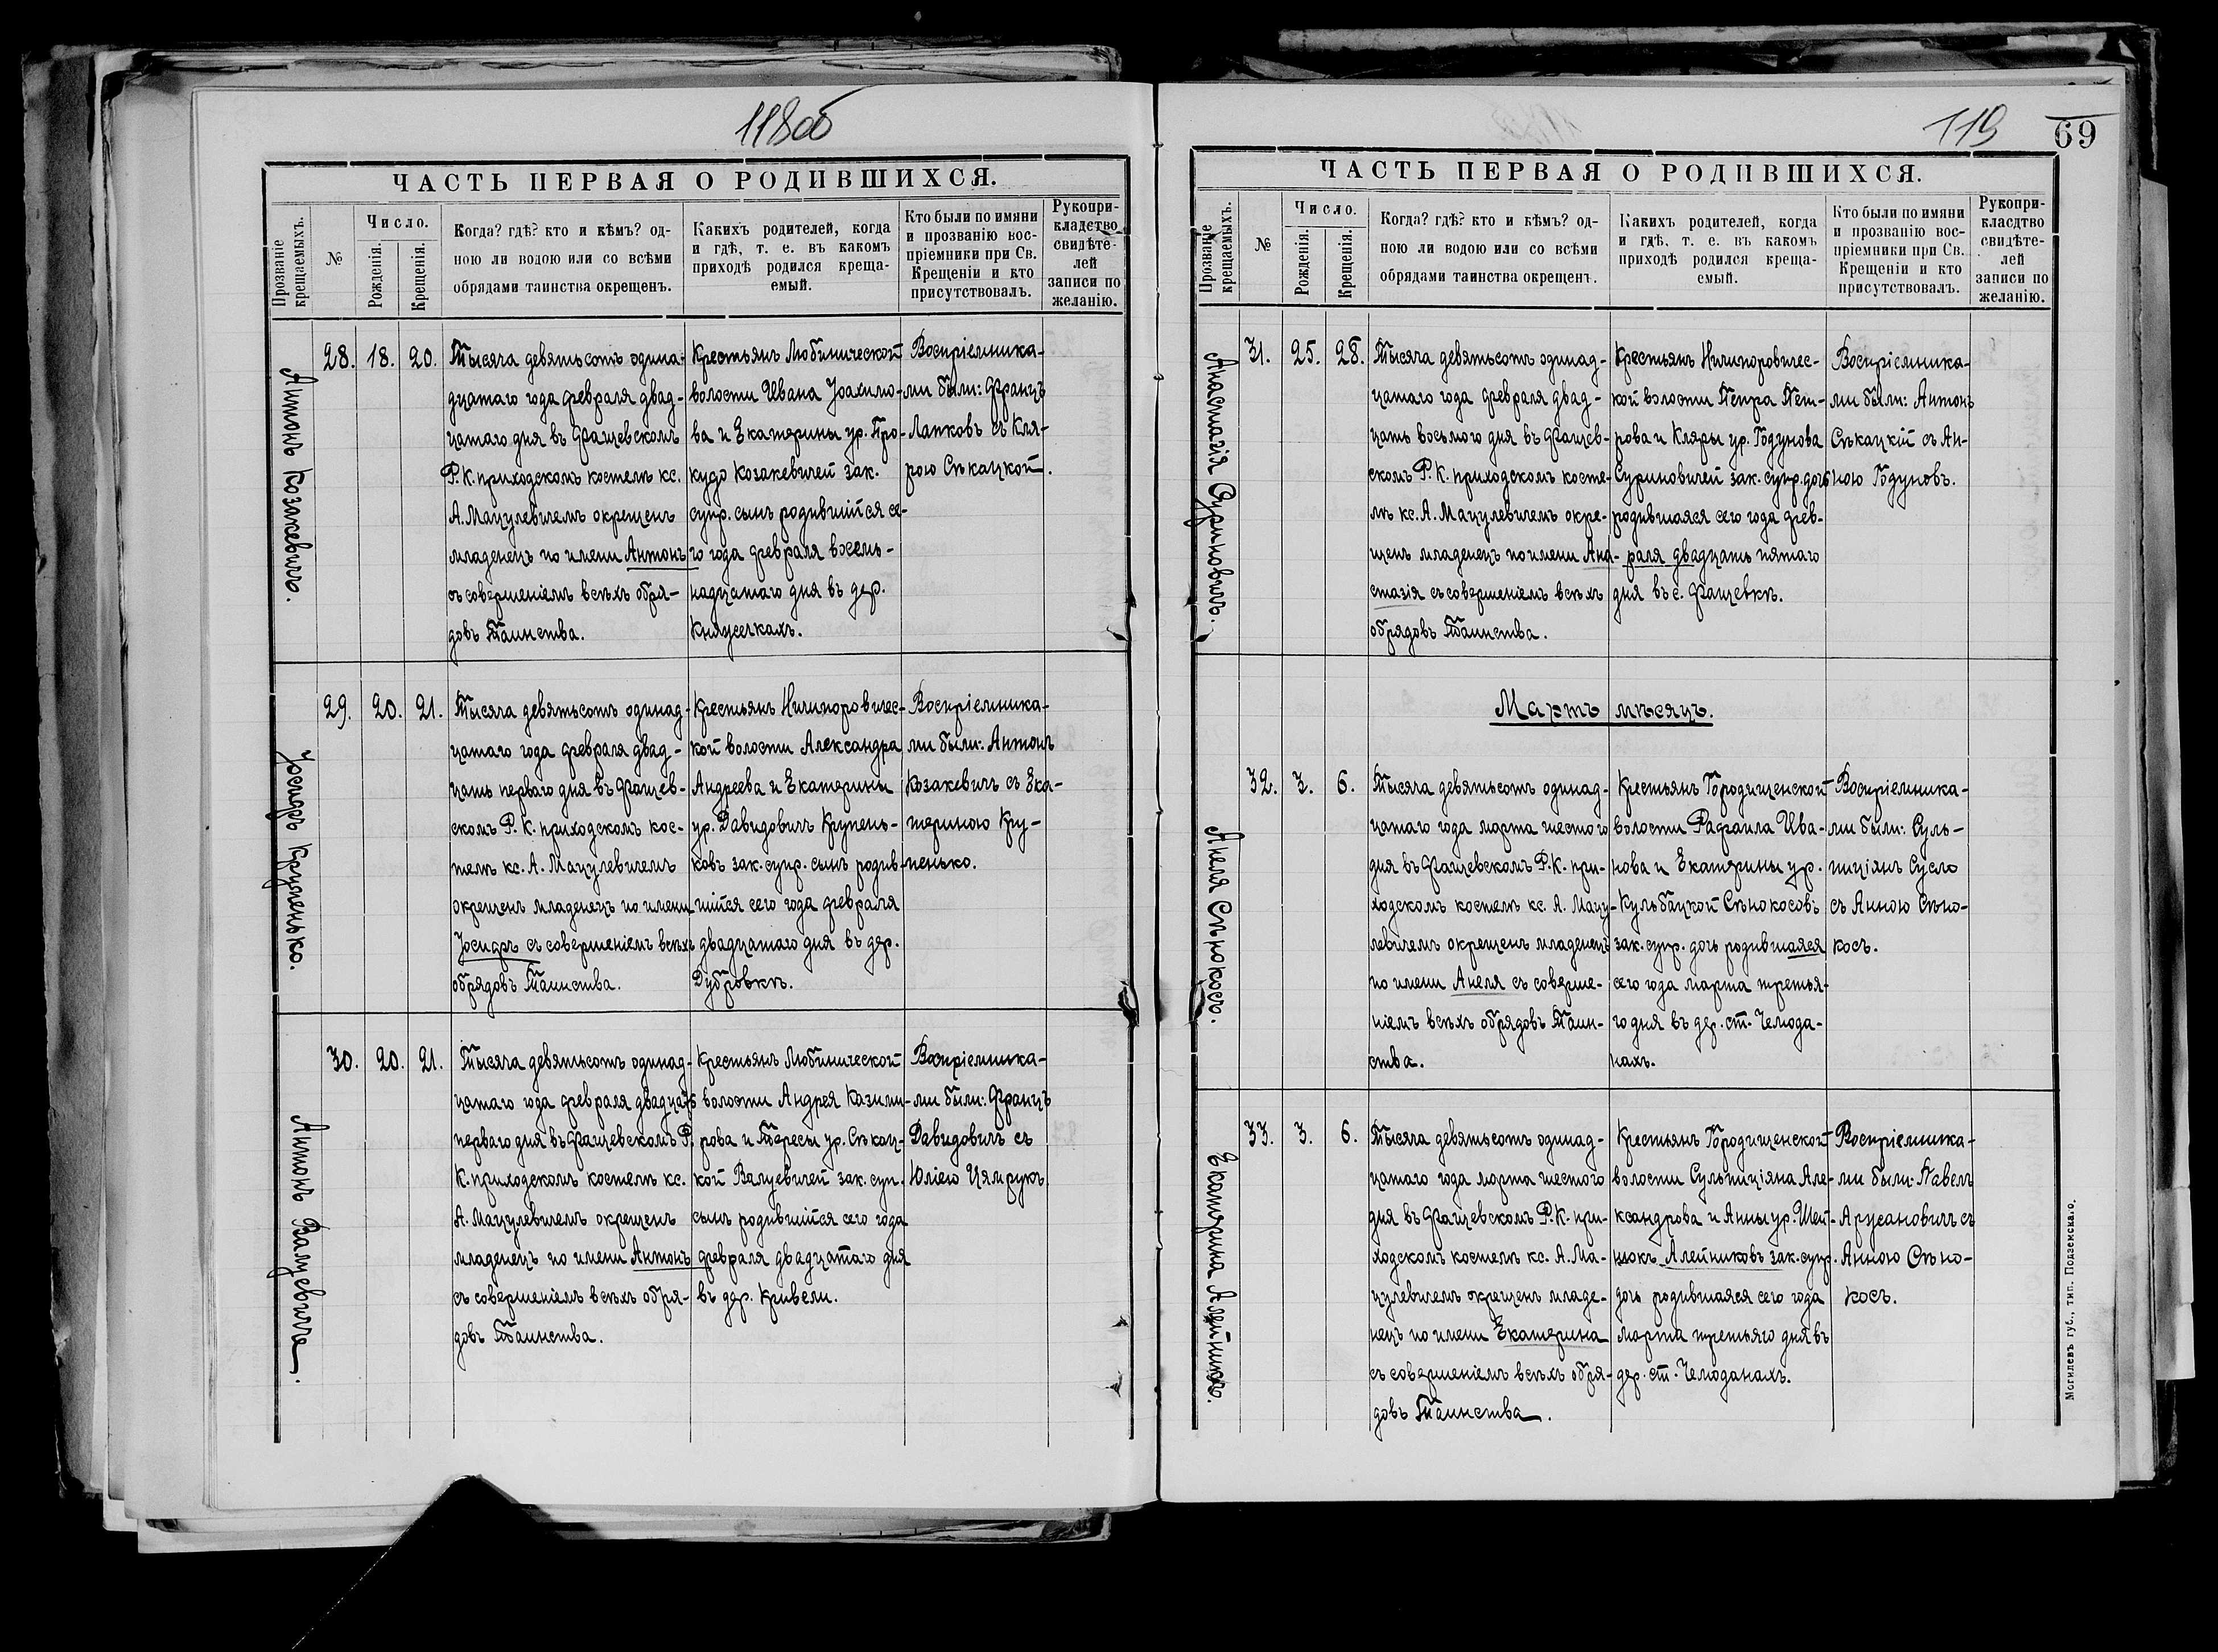 118об
ЧАСТЬ ПЕРВАЯ О РОДИВШИХСЯ.
Прозваніе крещаемыхъ.
№
Число.
Рожденія.
Крещенія.
Когда? гдѣ? кто и кѣмъ? од-
ною ли водою или со всѣми
обрядами таинства окрещенъ.
Какихъ родителей, когда
и гдѣ, т. е. въ какомъ
приходѣ родился креща-
емый.
Кто были по имяни
и прозванію вос-
пріемники при Св.
Крещеніи и кто
присутствовалъ.
Рукопри-
кладство
свидѣте-
лей
записи по
желанію.
Антонъ Козакевичъ.
28. 18. 20.
Тысяча девятьсотъ одина-
дцатаго года февраля двад-
цатаго дня въ Фащевскомъ
Р. К. приходскомъ костелѣ кс.
А. Мацулевичемъ окрещенъ
младенецъ по имени Антонъ
съ совершеніемъ всѣхъ обря-
довъ Таинства.
Крестьянъ Любиничской
волости Ивана Іоахимо-
ва и Екатерины ур. Про-
кудо Козакевичей зак.
супр. сынъ родившійся се-
го года февраля восемь-
надцатаго дня въ дер.
Княжечкахъ.
Воспріемника-
ми были: Францъ
Лапковъ съ Кля-
рою Сѣкацкой.
Іосифъ Крупенько.
29. 20. 21.
Тысяча девятьсотъ одинад-
цатаго года февраля двад-
цать перваго дня въ Фащев-
скомъ Р. К. приходскомъ кос-
телѣ кс. А. Мацулевичемъ
окрещенъ младенецъ по имени
Іосифъ съ совершеніемъ всѣхъ
обрядовъ Таинства.
Крестьянъ Ничипоровичес-
кой волости Александра
Андреева и Екатерины
ур. Давидовичъ Крупень-
ковъ зак. супр. сынъ родив-
шійся сего года февраля
двадцатаго дня въ дер.
Дубровкѣ.
Воспріемника-
ми были: Антонъ
Козакевичъ съ Ека-
териною Кру-
пенько.
Антонъ Валуевичъ.
30. 20. 21.
Тысяча девятьсотъ одинад-
цатаго года февраля двадцать
перваго дня въ Фащевскомъ Р.
К. приходскомъ костелѣ кс.
А. Мацулевичемъ окрещенъ
младенецъ по имени Антонъ
съ совершеніемъ всѣхъ обря-
довъ Таинства.
Крестьянъ Любиничской
волости Андрея Казими-
рова и Тересы ур. Сѣкац-
кой Валуевичей зак. суп.
сынъ родившійся сего года
февраля двадцатаго дня
въ дер. Кривели.
Воспріемника-
ми были: Францъ
Давидовичъ съ
Юліею Цямрукъ.
119
69
ЧАСТЬ ПЕРВАЯ О РОДИВШИХСЯ.
Прозваніе крещаемыхъ.
№
Число.
Рожденія.
Крещенія.
Когда? гдѣ? кто и кѣмъ? од-
ною ли водою или со всѣми
обрядами таинства окрещенъ.
Какихъ родителей, когда
и гдѣ, т. е. въ какомъ
приходѣ родился креща-
емый.
Кто были по имяни
и прозванію вос-
пріемники при Св.
Крещеніи и кто
присутствовалъ.
Рукопри-
кладство
свидѣте-
лей
записи по
желанію.
Анастазія Суриновичъ.
31. 25. 28.
Тысяча девятьсотъ одинад-
цатаго года февраля двад-
цать восьмого дня въ Фащев-
скомъ Р. К. приходскомъ косте-
лѣ кс. А. Мацулевичемъ окре-
щенъ младенецъ по имени Ана-
стазія съ совершеніемъ всѣхъ
обрядовъ Таинства.
Крестьянъ Ничипоровичес-
кой волости Петра Пет-
рова и Кляры ур. Годунова
Суриновичей зак. супр. дочь
родившаяся сего года фев-
раля двадцать пятаго
дня въ с. Фащевкѣ.
Воспріемника-
ми были: Антонъ
Сѣкацкій съ Ан-
ною Годуновъ.
Мартъ мѣсяцъ.
Анеля Сѣнокосъ.
32. 3. 6.
Тысяча девятьсотъ одинад-
цатаго года марта шестого
дня въ Фащевскомъ Р. К. при-
ходскомъ костелѣ кс. А. Мацу-
левичемъ окрещенъ младенецъ
по имени Анеля съ соверше-
ніемъ всѣхъ обрядовъ Таин-
ства.
Крестьянъ Городищенской
волости Рафаила Ива-
нова и Екатерины ур.
Кульбацкой Сѣнокосовъ
зак. супр. дочь родившаяся
сего года марта третья-
го дня въ дер. ст. Чемода-
нахъ.
Воспріемника-
ми были: Суль-
пиціянъ Сусло
съ Анною Сѣно-
косъ.
Екатерина Алейникъ.
33. 3. 6.
Тысяча девятьсотъ одинад-
цатаго года марта шестого
дня въ Фащевскомъ Р. К. при-
ходскомъ костелѣ кс. А. Ма-
цулевичемъ окрещенъ младе-
нецъ по имени Екатерина
съ совершеніемъ всѣхъ обря-
довъ Таинства.
Крестьянъ Городищенской
волости Сульпиціяна Але-
ксандрова и Анны ур. Шей-
нюкъ Алейниковъ зак. супр.
дочь родившаяся сего года
марта третьяго дня въ
дер. ст. Чемоданахъ.
Воспріемника-
ми были: Павелъ
Арусановичъ съ
Анною Сѣно-
косъ.
Могилевъ губ., тип. Подземскаго.